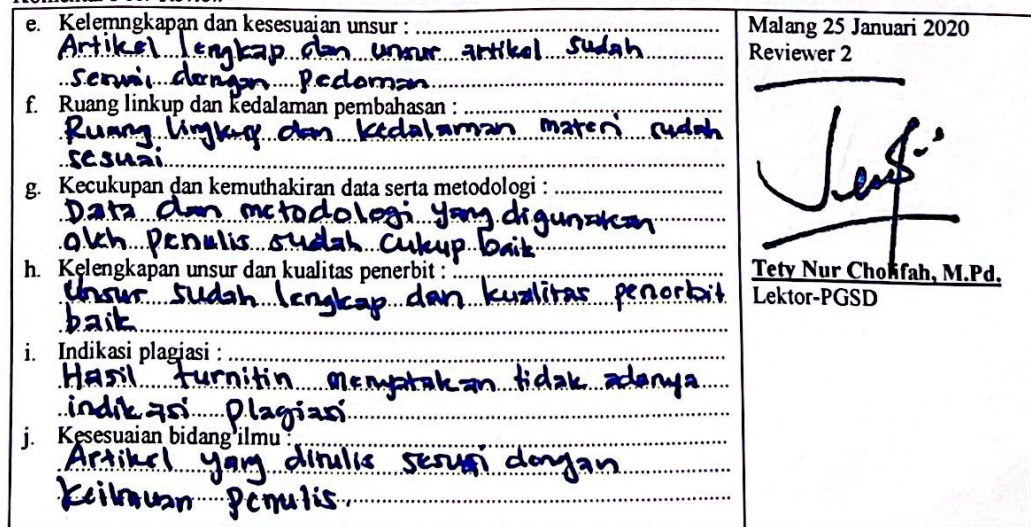 e. Kelemngkapan dan kesesuaian unsur :
Artikel lengkap dan unsur artikel sudah
sesuai dengan Pedoman
f. Ruang linkup dan kedalaman pembahasan :
Ruang lingkup dan kedalaman materi sudah
sesuai
g. Kecukupan dan kemuthakiran data serta metodologi :
Data dan metodologi yang digunakan
oleh Penulis sudah cukup baik
h. Kelengkapan unsur dan kualitas penerbit :
Unsur sudah lengkap dan kualitas penerbit
baik
i. Indikasi plagiasi :
Hasil turnitin menyatakan tidak adanya
indikasi Plagiasi
j. Kesesuaian bidang ilmu :
Artikel yang ditulis sesuai dengan
Keilmuan Penulis.
Malang 25 Januari 2020
Reviewer 2
Tety Nur Cholifah, M.Pd.
Lektor-PGSD